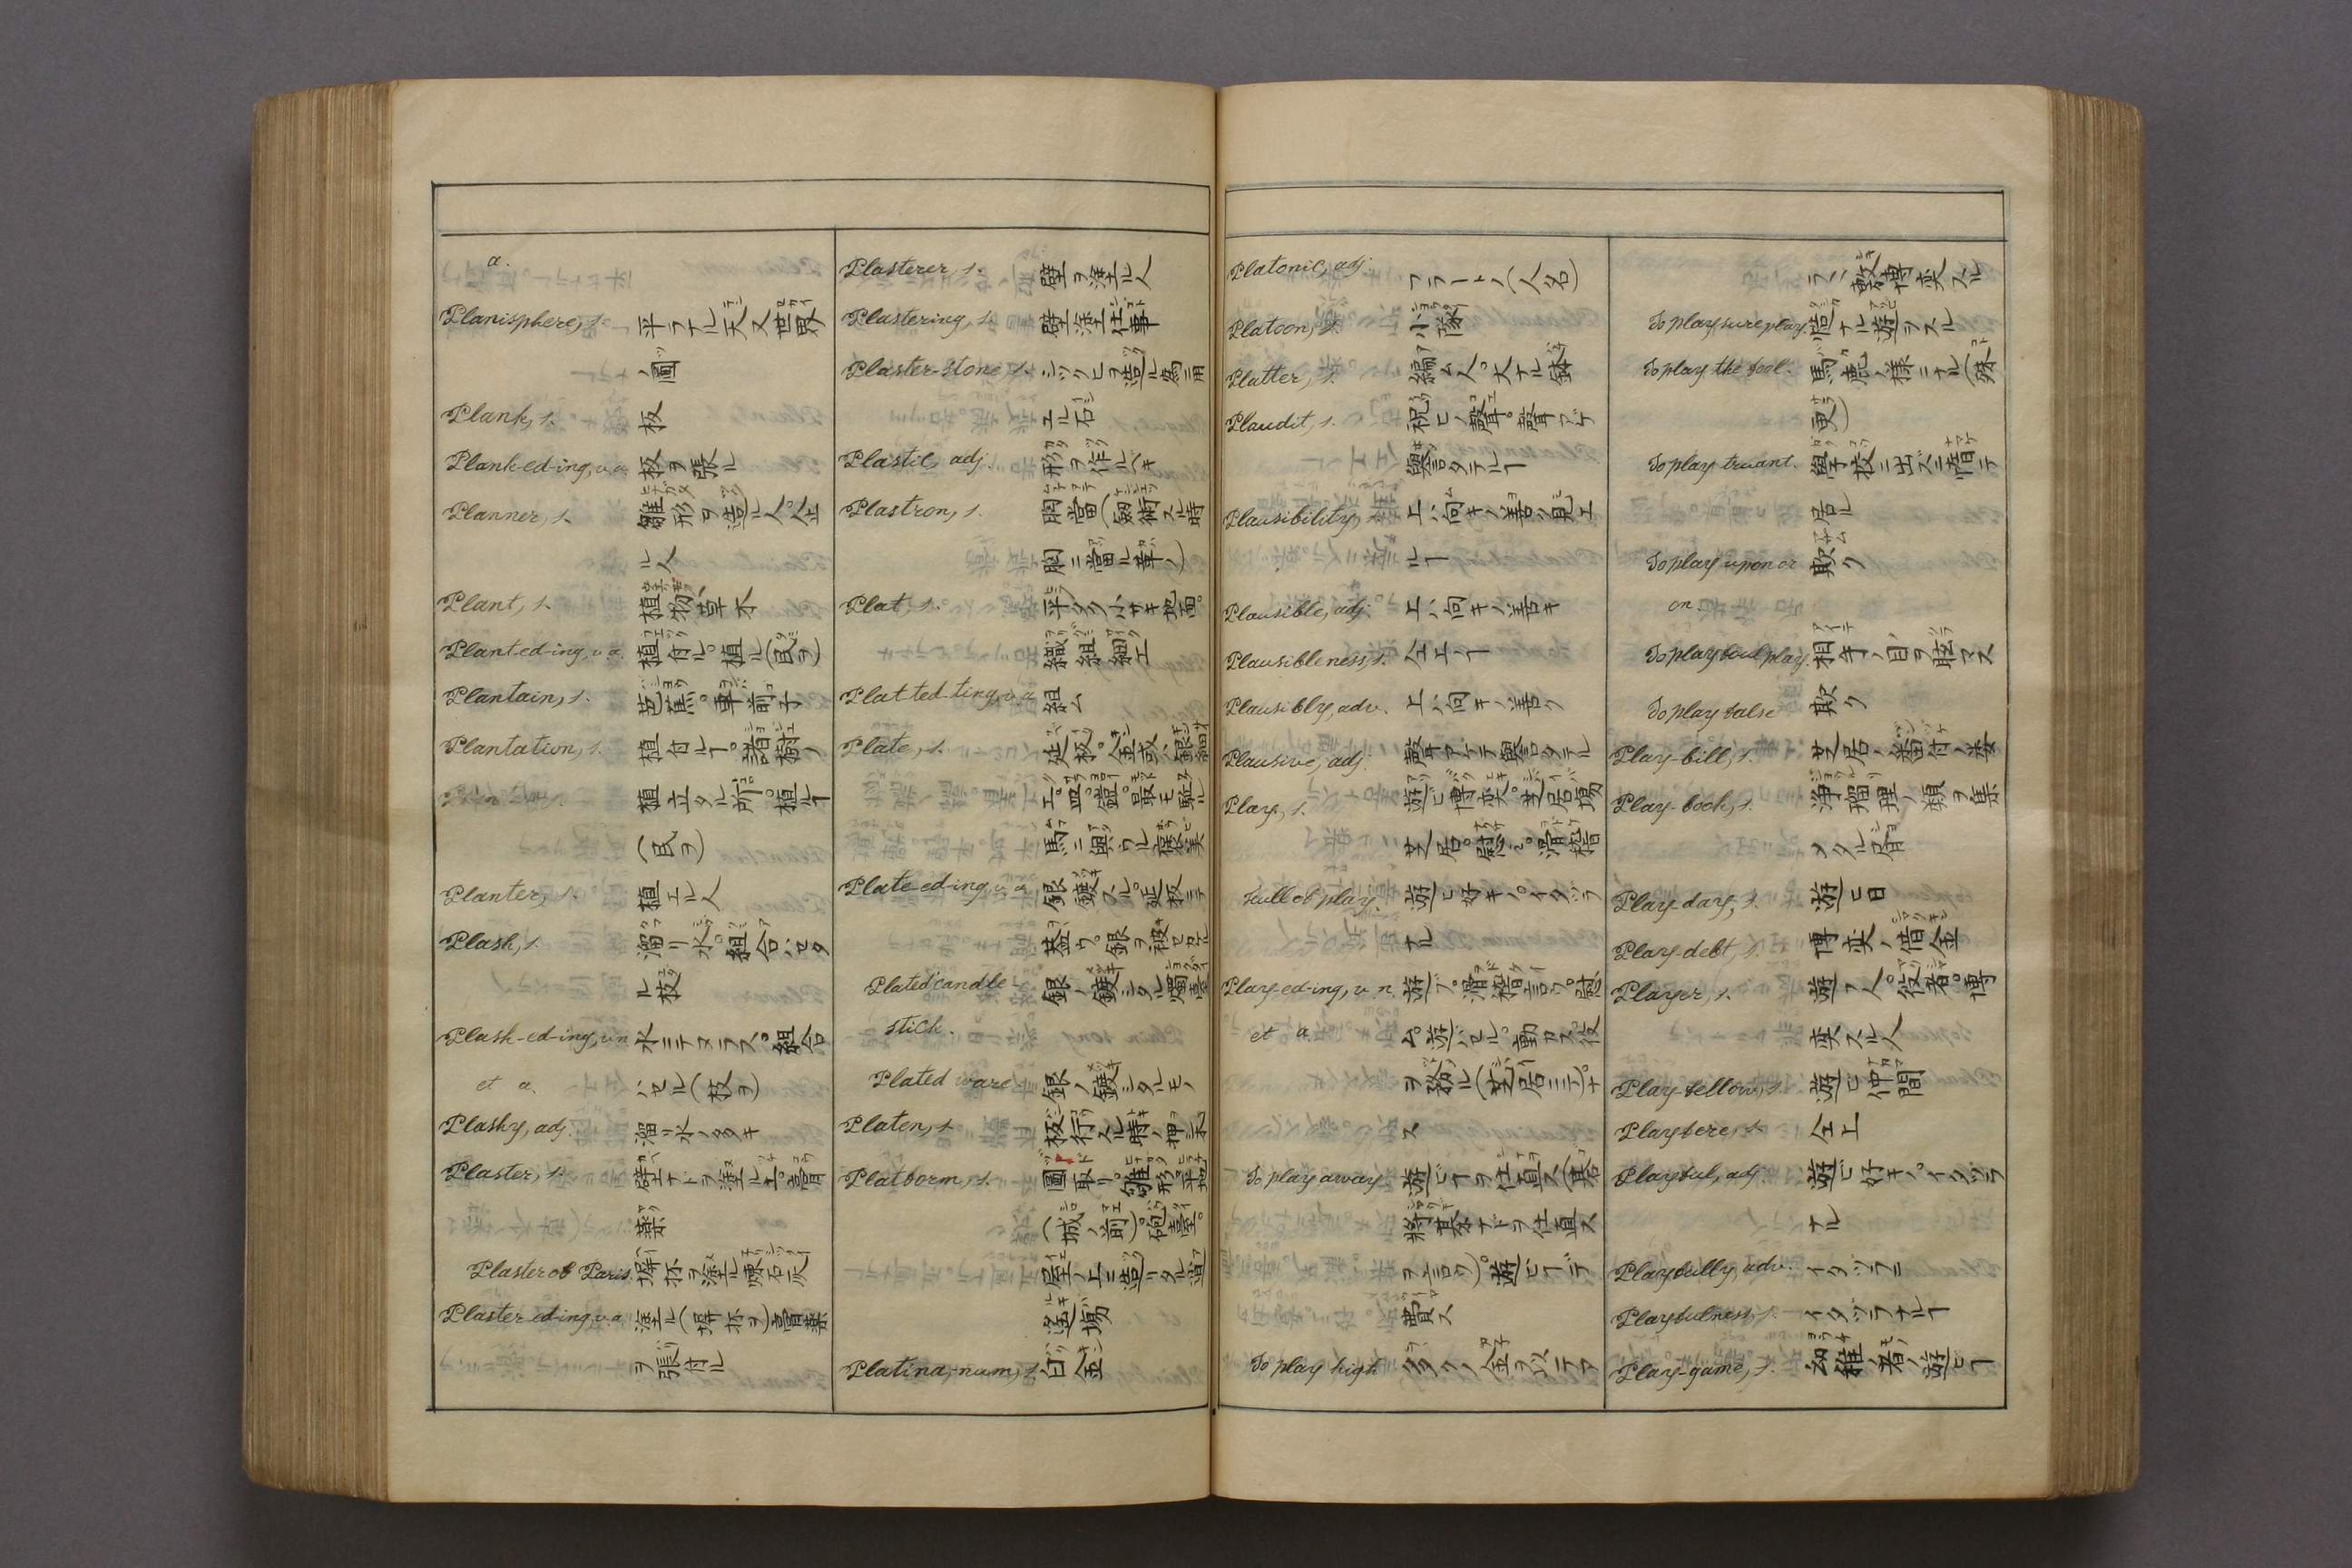 a.
Planisphere, s. 平ラナル天又世界
ノ圖
Plank, s. 板
Plank-ed-ing, v. a. 板ヲ張ル
Planner, s. 雛形ヲ造ル人。企
ル人
Plant, s. 植物、草木
Plant-ed-ing, v. a. 植付ル。植ル(民ヲ)
Plantain, s. 芭蕉。車前子
Plantation, s. 植付ルヿ。諸樹ノ
植立タル所。植ルヿ
(民ヲ)
Planter, s. 植エル人
Plash, s. 溜リ水。組合ハセタ
ル枝
Plash-ed-ing, v. n. 水ニテヌラス。組合
et a. ハセル(枝ヲ)
Plashy, adj. 溜リ水ノ多キ
Plaster, s. 壁ナドヲ塗ル土。膏
薬
Plaster of Paris. 塀抔ヲ塗ル煉石灰
Plaster-ed-ing, v. a. 塗ル(塀抔ヲ)膏薬
ヲ張付ル
Plasterer, s. 壁ヲ塗ル人
Plastering, s. 壁塗仕事
Plaster-stone, s. シックヒヲ造ル為ニ用
エル石
Plastic, adj. 形ヲ作ルベキ
Plastron, s. 胸當(劔術スル時
胸ニ當ル革ノ)
Plat, s. 平タク小サキ地面。
織組細工
Plat-ted-ting, v. a. 組ム
Plate, s. 延板。金或ハ銀細
工。皿。鎧。最モ駈ル
馬ニ與ウル褒美
Plate-ed-ing, v. a. 銀鍍スル。延板ニテ
蓋ウ。銀ヲ被セル
Plated candle- 銀ノ鍍シタル燭臺
stick.
Plated ware. 銀ノ鍍シタルモノ
Platen, s. 板行スル時ノ押木
Platform, s. 圖取リ。雛形。平地
(城ノ前)砲臺。
屋ノ上ニ造リタル逍
遙場
Platina,-num, s. 白金
Platonic, adj. プラートノ(人名)
Platoon, s. 小隊
Platter, s. 編ム人。大ナル鉢
Plaudit, s. 祝ヒノ聲。聲アゲ
譽言タテルヿ
Plausibility, s. 上ハ向キノ善ク見エ
ルヿ
Plausible, adj. 上ハ向キノ善キ
Plausibleness, s. 仝上ノヿ
Plausibly, adv. 上ハ向キノ善ク
Plausive, adj. 聲アゲテ譽言タテル
Play, s. 遊ビ。博奕。芝居場
芝居。慰ミ。滑稽
Full of play. 遊ビ好キノ。イタヅラ
ナル
Play-ed-ing, v. n. 遊ブ。滑稽言ウ。慰
et a. ム。遊バセル。動カス。役
ヲ務ル(芝居ニテ)。ナ
ス
To play away 遊ビヿヲ仕直ス(碁
將棊ナドヲ仕直ス
ヲ言ウ)。遊ビヿデ
費ス
To play high 多クノ金ヲ以テア
ラヽ敷博奕スル
To play sure play. 慥ナル遊ヲスル
To play the fool. 馬鹿ノ様ニナル(殊
更)
To play truant. 學校ニ出ズニ惰テ
居ル
To play upon or 欺ク
on.
To play foul play. 相手ノ目ヲ眩マス
To play false 欺ク
Play-bill, s. 芝居ノ番付ノ案
Play-book, s. 浄瑠理ノ類ヲ集
メタル書
Play-day, s. 遊ビ日
Play-debt, s. 博奕ノ借金
Player, s. 遊フ人。役者。博
奕スル人
Play-fellow, s. 遊ビ仲間
Playfere, s. 仝上
Playful, adj. 遊ビ好キノ。イタヅラ
ナル
Playfully, adv. イタヅラニ
Playfulness, s. イタヅラナルヿ
Play-game, s. 幼稚ノ者ノ遊ビヿ